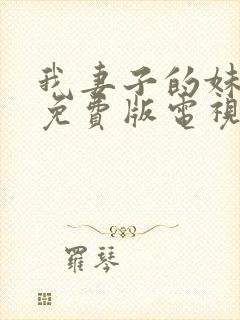 我妻子的妹
免費版電視
羅琴